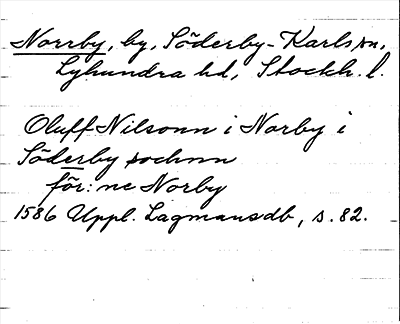 Norrby, by, Söderby-Karls sn,
Lyhundra hd, Stockh. l.
Oluff Nilsonn i Norby i
Söderby sochnn
för: ne Norby
1586 Uppl. Lagmansdb, s. 82.